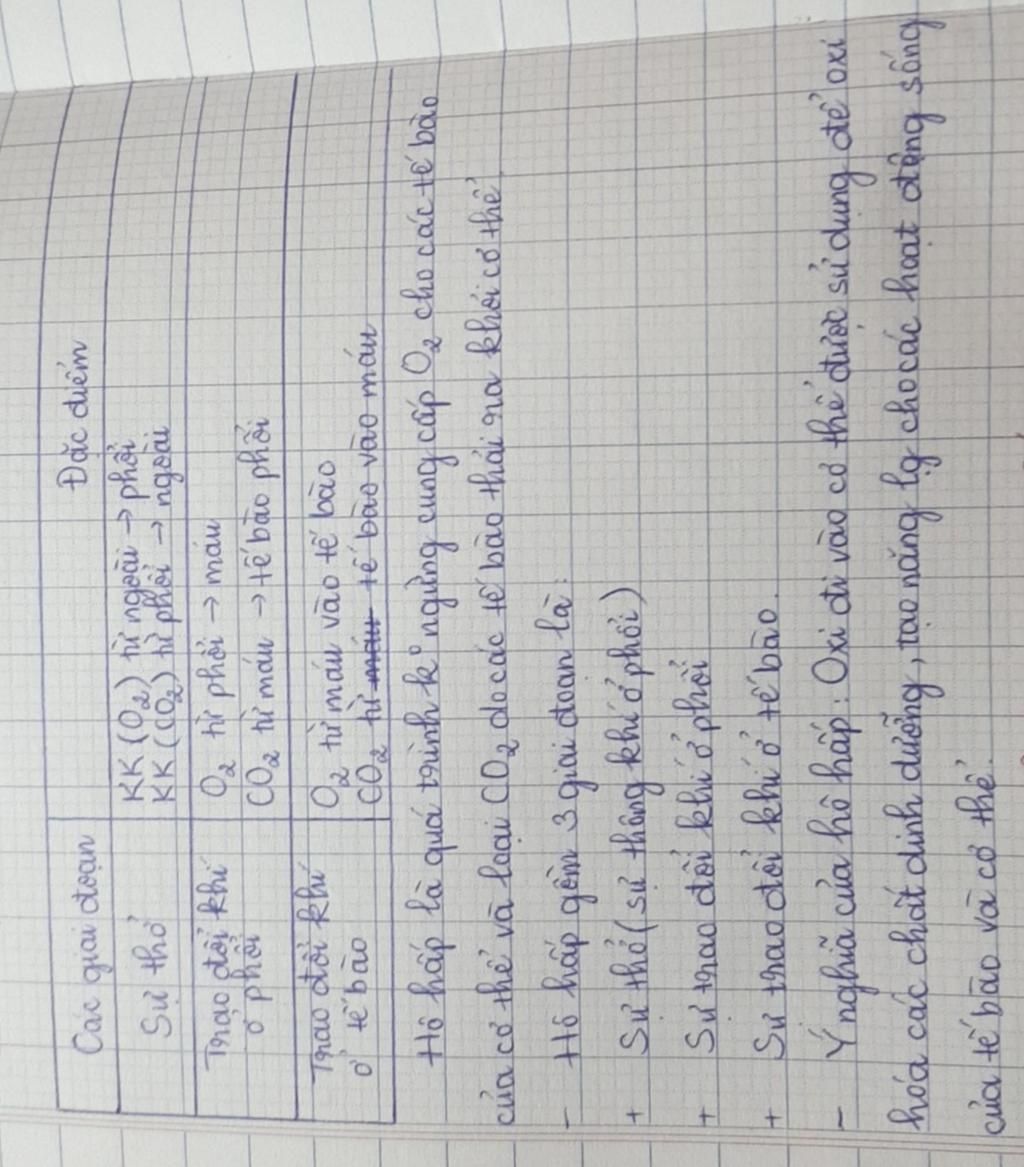 Các giai đoạn Đặc điểm
Sự thở KK (O₂) từ ngoài → phổi
KK (CO₂) từ phổi → ngoài
Trao đổi khí O₂ từ phổi → máu
ở phổi CO₂ từ máu → tế bào phổi
Trao đổi khí O₂ từ máu vào tế bào
ở tế bào CO₂ từ máu tế bào vào máu
Hô hấp là quá trình k° ngừng cung cấp O₂ cho các tế bào
của cơ thể và loại CO₂ do các tế bào thải ra khỏi cơ thể
- Hô hấp gồm 3 giai đoạn là:
+ Sự thở (sự thông khí ở phổi)
+ Sự trao đổi khí ở phổi
+ Sự trao đổi khí ở tế bào.
- Ý nghĩa của hô hấp: Oxi đi vào cơ thể được sử dụng để oxi
hóa các chất dinh dưỡng, tạo năng lg cho các hoạt động sống
của tế bào và cơ thể.